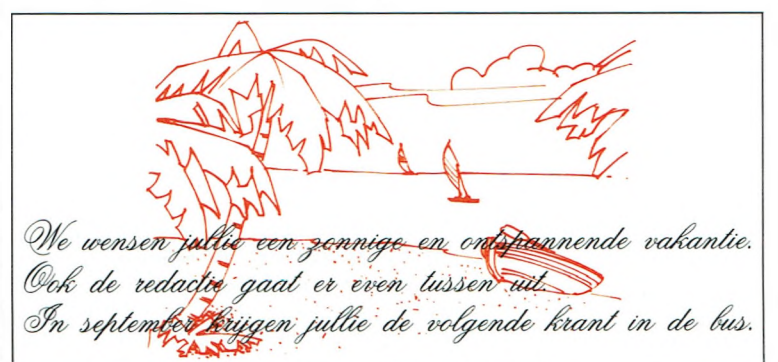 We wensen jullie een zonnige en ontspannende vakantie.
Ook de redactie gaat er even tussen uit.
In september krijgen jullie de volgende krant in de bus.